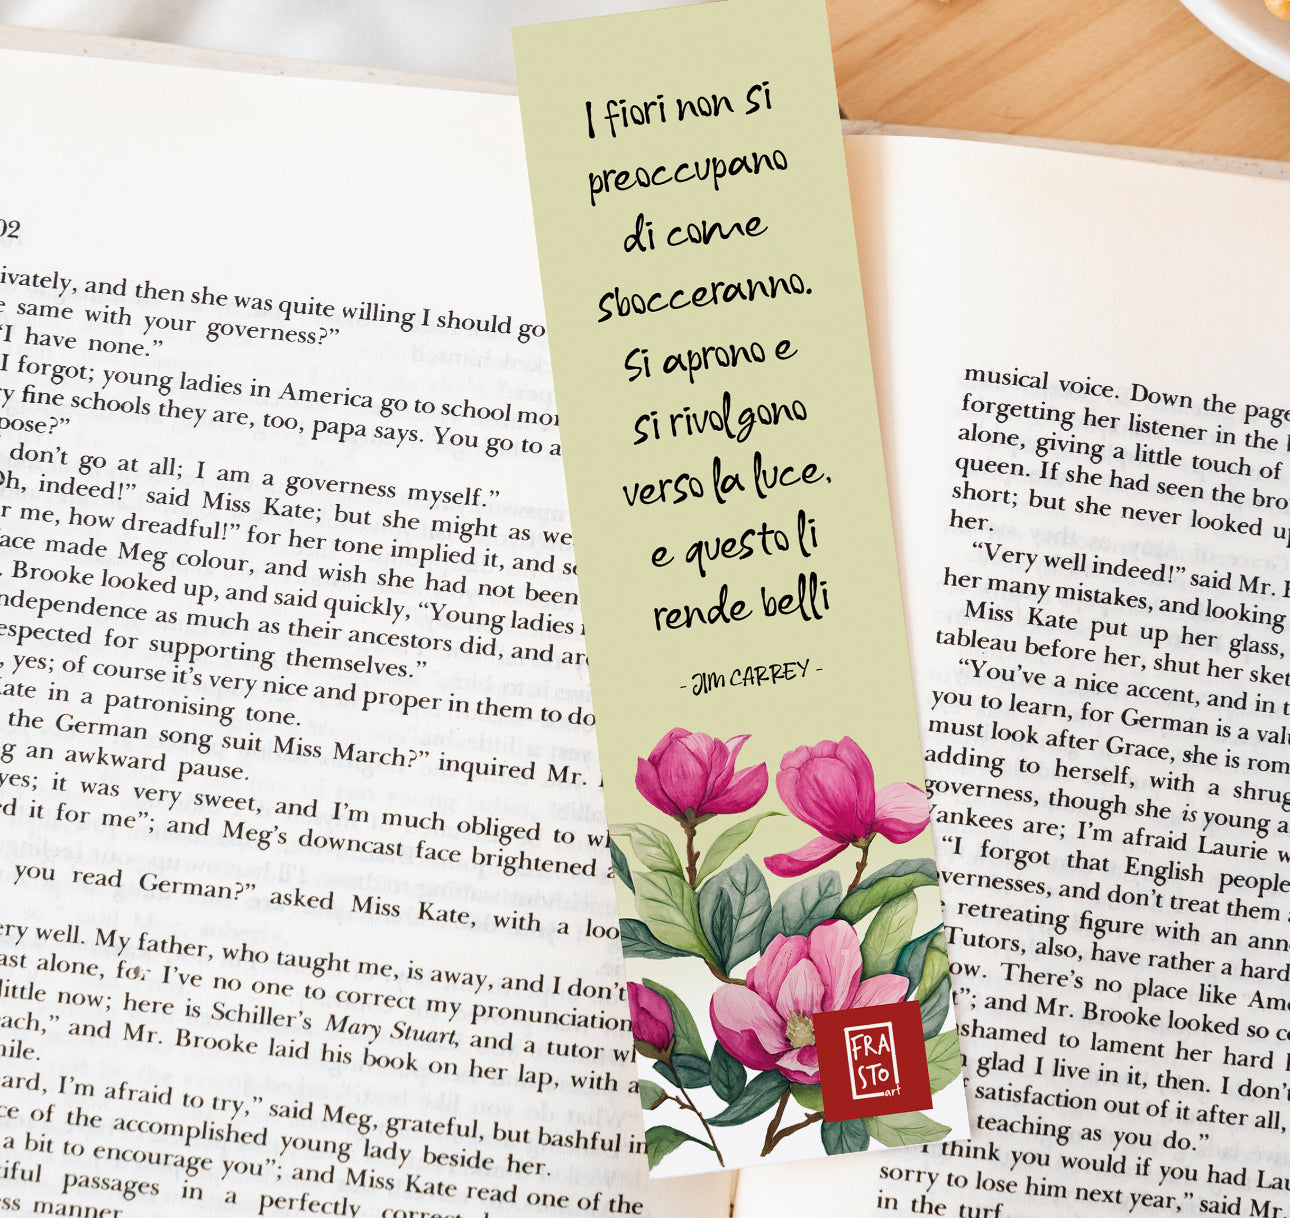 02
ivately, and then she was quite willing I should go
same with your governess?”
“I have none.”
I forgot; young ladies in America go to school
fine schools they are, too, papa says. You go to a
don’t go at all; I am a governess myself.”
indeed!” said Miss Kate; but she might as
me, how dreadful!” for her tone implied it, and
made Meg colour, and wish she had not been
Brooke looked up, and said quickly, “Young ladies
as much as their ancestors did, and
for supporting themselves.”
yes; of course it’s very nice and proper in them to do
in a patronising tone.
the German song suit Miss March?” inquired Mr.
an awkward pause.
yes; it was very sweet, and I’m much obliged to
it for me”; and Meg’s downcast face brightened
you read German?” asked Miss Kate, with a
well. My father, who taught me, is away, and I don’t
alone, for I’ve no one to correct my pronunciation
little now; here is Schiller’s Mary Stuart, and a tutor
and Mr. Brooke laid his book on her lap, with a
I’m afraid to try,” said Meg, grateful, but bashful in
of the accomplished young lady beside her.
a bit to encourage you”; and Miss Kate read one of the
passages in a perfectly
manner
I fiori non si
preoccupano
di come
sbocceranno.
Si aprono e
si rivolgono
verso la luce,
e questo li
rende belli
- JIM CARREY -
FRA
STO
art
musical voice. Down the page
forgetting her listener in the
alone, giving a little touch of
queen. If she had seen the
short; but she never looked
her.
“Very well indeed!” said Mr.
her many mistakes, and looking
Miss Kate put up her glass,
tableau before her, shut her
“You’ve a nice accent, and in
you to learn, for German is a
must look after Grace, she is
adding to herself, with a
governess, though she is young
Yankees are; I’m afraid Laurie
“I forgot that English people
and don’t treat them
retreating figure with an
Tutors, also, have rather a hard
There’s no place like
and Mr. Brooke looked so
to lament her hard
glad I live in it, then. I don’t
satisfaction out of it after all,
teaching as you do.”
think you would if you had
sorry to lose him next year,” said Mr.
in the turf.